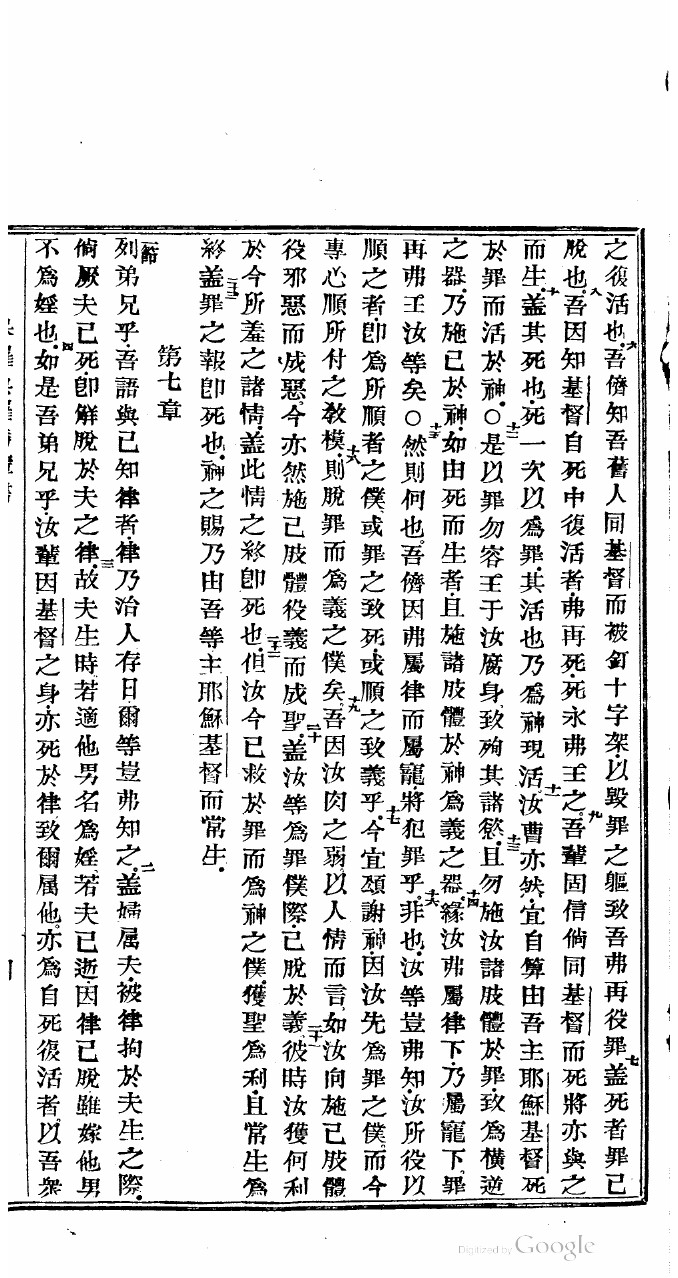 之復活也六吾儕知吾舊人同基督而被釘十字架以毀罪之軀致吾弗再役罪七盖死者罪已
脫也八吾因知基督自死中復活者弗再死死永弗王之九吾輩固信倘同基督而死將亦與之
而生十盖其死也死一次以爲罪其活也乃爲神現活十一汝曹亦然宜自算由吾主耶穌基督死
於罪而活於神○十二是以罪勿容王于汝腐身致殉其諸慾十三且勿施汝諸肢體於罪致爲橫逆
之器乃施己於神如由死而生者且施諸肢體於神爲義之器十四緣汝弗屬律下乃屬寵下罪
再弗王汝等矣○十五然則何也吾儕因弗屬律而屬寵將犯罪乎非也十六汝等豈弗知汝所役以
順之者卽爲所順者之僕或罪之致死或順之致義乎十七今宜頌謝神因汝先爲罪之僕而今
專心順所付之敎模十八則脫罪而爲義之僕矣十九吾因汝肉之弱以人情而言如汝向施己肢體
役邪惡而成惡今亦然施己肢體役義而成聖二十盖汝等爲罪僕際已脫於義二十一彼時汝獲何利
於今所羞之諸情盖此情之終卽死也二十二但汝今已救於罪而爲神之僕獲聖爲利且常生爲
終二十三盖罪之報卽死也神之賜乃由吾等主耶穌基督而常生
第七章
一節列弟兄乎吾語與已知律者律乃治人存日爾等豈弗知之二盖婦属夫被律拘於夫生之際
倘厥夫已死卽解脫於夫之律三故夫生時若適他男名爲婬若夫已逝因律已脫雖嫁他男
不爲婬也四如是吾弟兄乎汝輩因基督之身亦死於律致爾属他亦爲自死復活者以吾衆
Digitized by Google